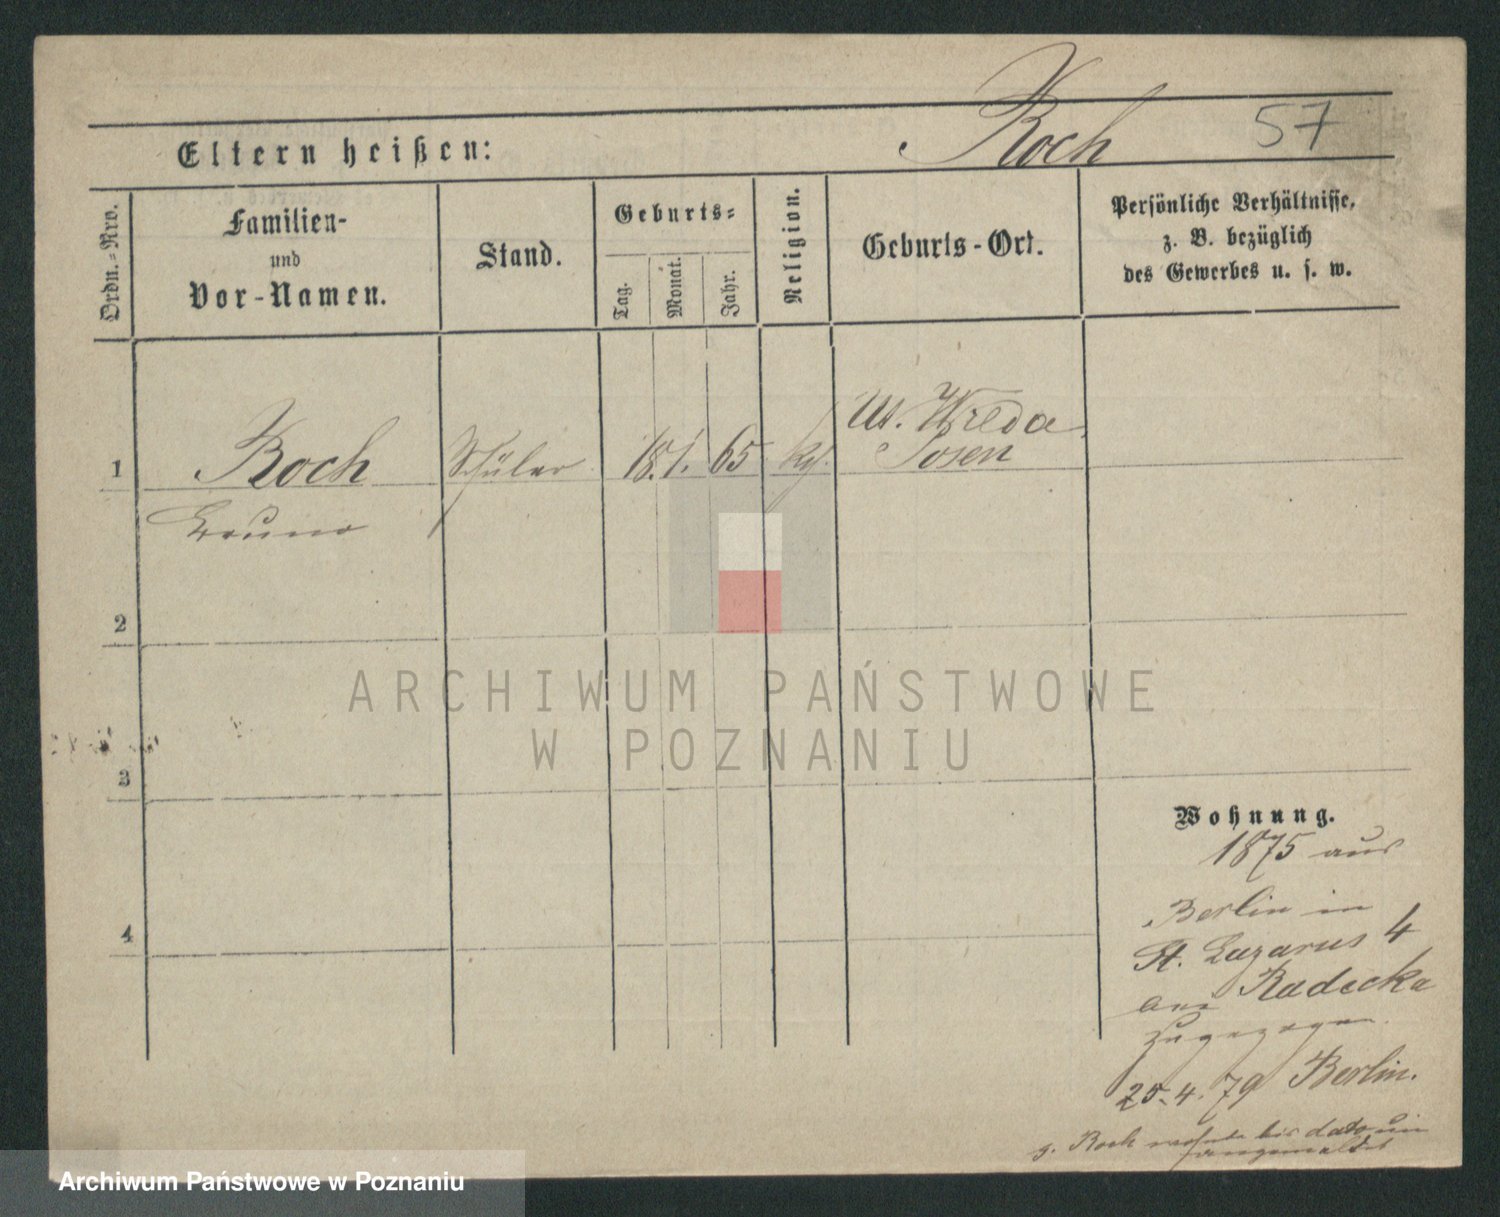 Koch 57
Eltern heißen:
Ordn.-Nro.
Familien-
und
Vor-Namen.
Stand.
Geburts-
Tag.
Monat.
Jahr.
Religion.
Geburts-Ort.
Persönliche Verhältnisse,
z. B. bezüglich
des Gewerbes u. s. w.
1 Koch Schüler 18. 1. 65 Wreda
Posen
Bruno
2
3
4
Wohnung.
1875 aus
Berlin in
St. Lazarus 4
bei Radecka
zugezogen
25. 4. 79 Berlin.
Koch bis dato
ARCHIWUM PAŃSTWOWE
W POZNANIU
Archiwum Państwowe w Poznaniu